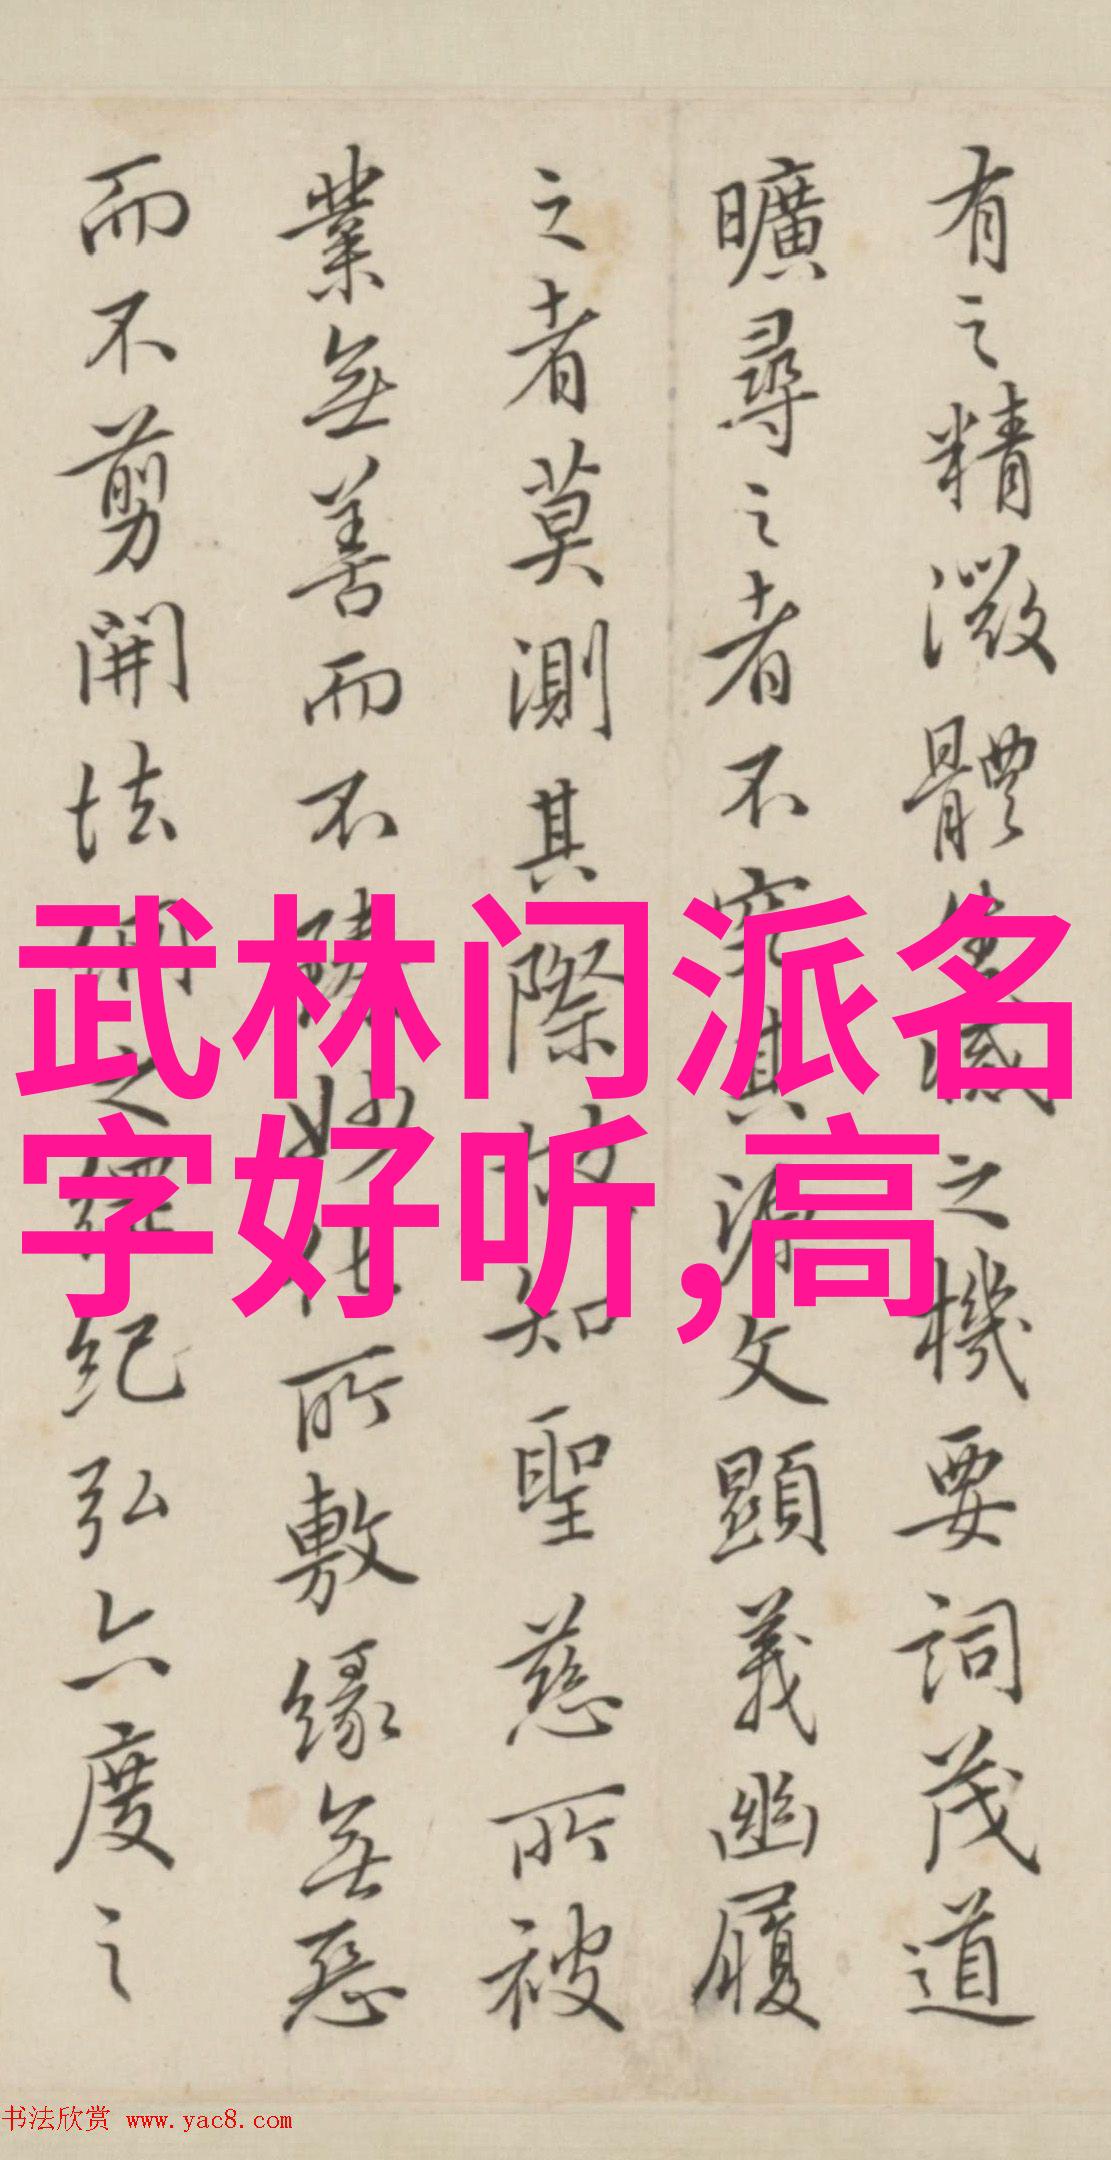 有之精微體生滅之機要詞茂道
曠尋之者不究其源文顯義幽履
之者莫測其際故知聖慈所被
業無善而不臻妙化所敷緣無惡
而不剪開法網之綱紀弘六度之
武林门派名
字好听,高
书法欣赏 www.yac8.com